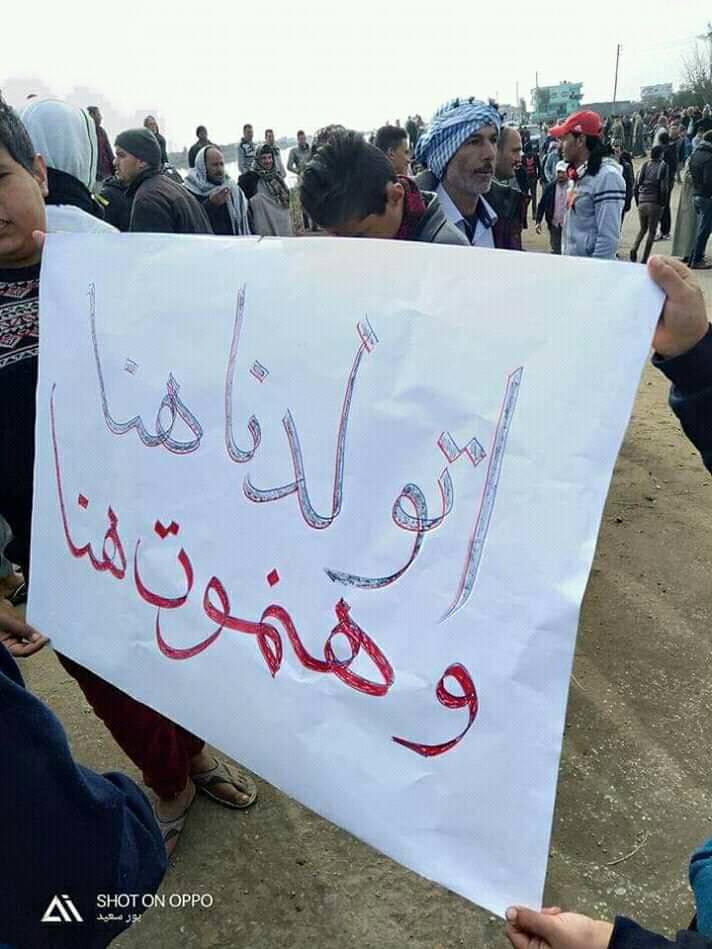 اتولدنا هنا
وهنموت هنا
SHOT ON OPPO
بور سعيد